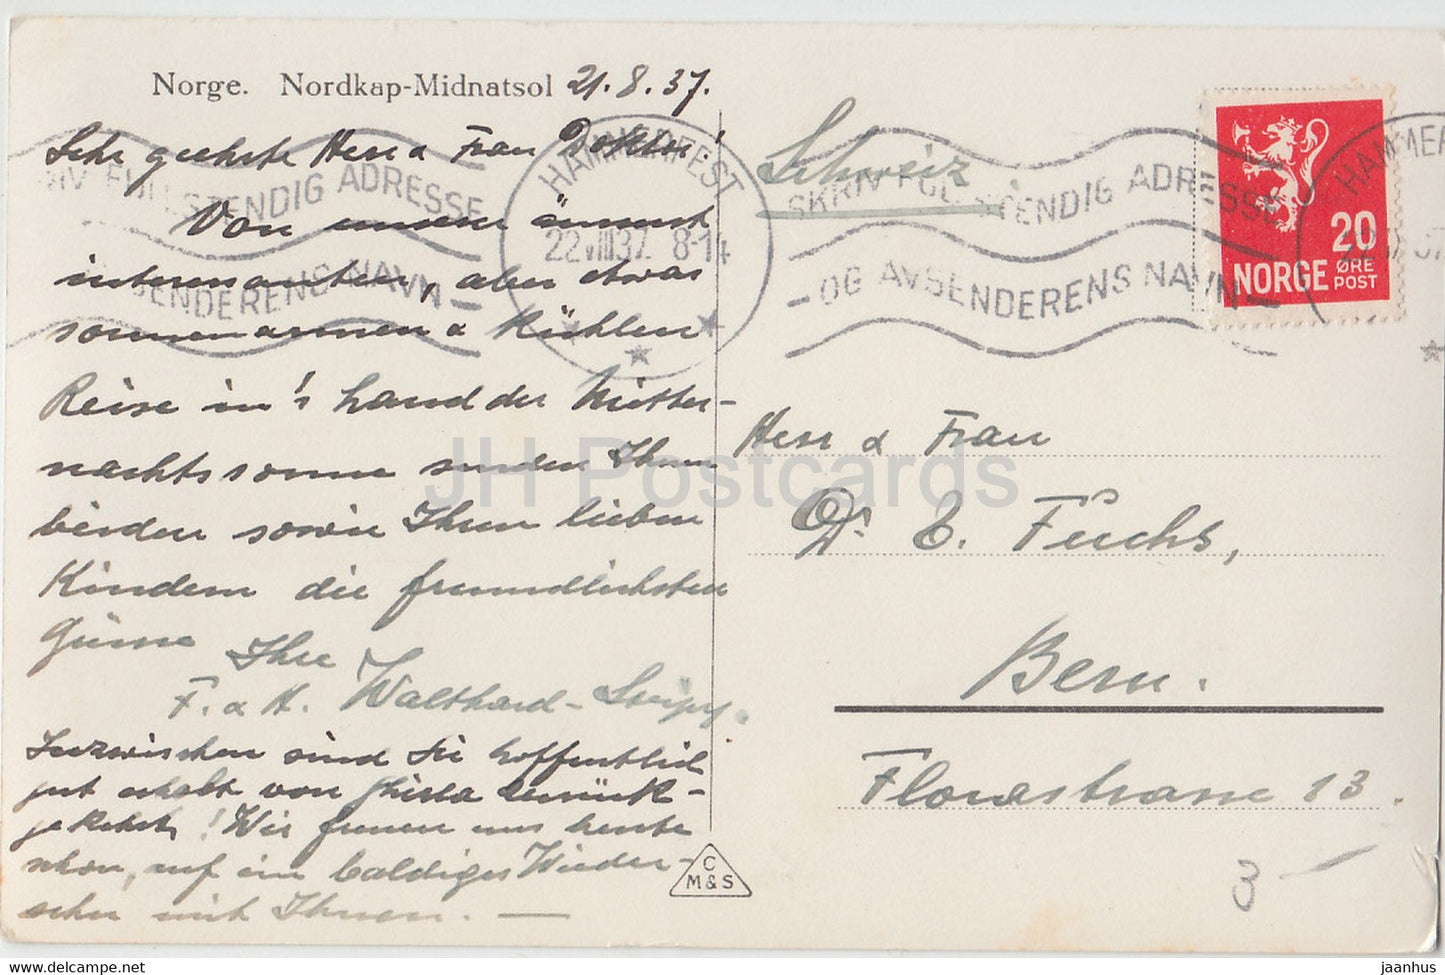 Norge. Nordkap-Midnatsol 21.8.37.
Sehr geehrte Herr & Frau Doktor!
Von unserer äusserst
interessanten, aber etwas
sonnenarmen & kühlen
Reise in's Land der Mitter-
nachtssonne senden Ihnen
beiden sowie Ihren lieben
Kindern die freundlichsten
Grüsse Ihre
F. & H. Walthard-
Inzwischen sind Sie hoffentlich
gut erholt von zurück-
gekehrt! Wir freuen uns heute
schon, auf ein baldiges Wieder-
sehn mit Ihnen. —
SKRIV FULLSTENDIG ADRESSE
OG AVSENDERENS NAVN
HAMMERFEST
22.VIII37. 8-14
Schweiz.
SKRIV FULLSTENDIG ADRESSE
— OG AVSENDERENS NAVN —
HAMMER
20
NORGE ØRE
POST
Herr & Frau
Dr. E. Fuchs,
Bern.
Florastrasse 13.
C
M&S
3
JH Postcards
www.delcampe.net
jaanhus